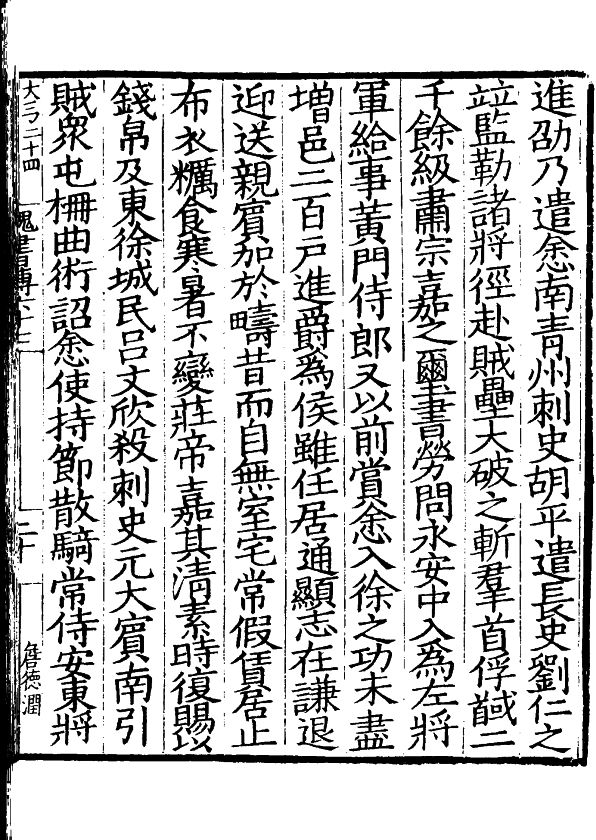 進劭乃遣悆南青州刺史胡平遣長史劉仁之
竝監勒諸將徑赴賊壘大破之斬羣首俘馘二
千餘級肅宗嘉之璽書勞問永安中入為左將
軍給事黃門侍郎又以前賞悆入徐之功未盡
增邑二百戸進爵為侯雖任居通顯志在謙退
迎送親賓加於疇昔而自無室宅常假賃居止
布衣糲食寒暑不變莊帝嘉其清素時復賜以
錢帛及東徐城民呂文欣殺刺史元大賓南引
賊衆屯柵曲術詔悆使持節散騎常侍安東將
魏書傳六十七
二十
詹德潤